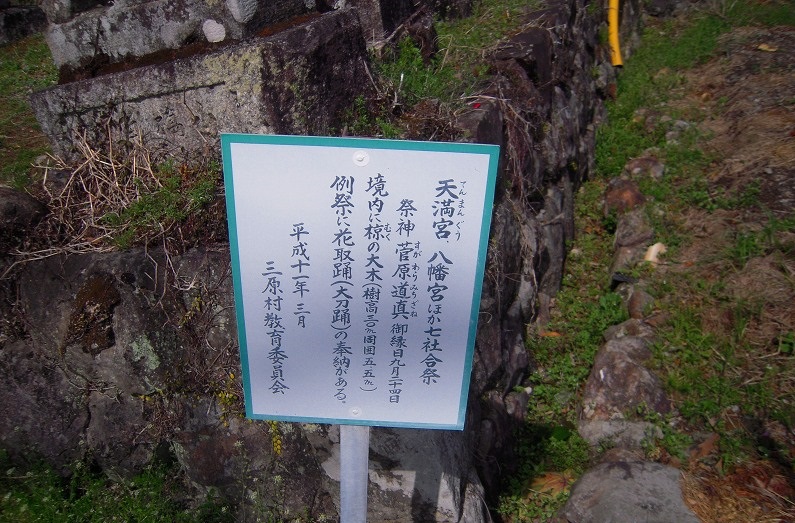 てんまんぐう
天満宮 八幡宮ほか七社合祭
すがわらみちざね
祭神 菅原道真 御縁日九月二十四日
むく
境内に椋の大木(樹高三〇m周囲五・五m)
例祭に花取踊(大刀踊)の奉納がある。
平成十一年三月
三原村教育委員会